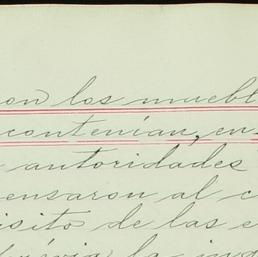 on los muebl
contenían, en
autoridades
ensaron al c
isito de las e